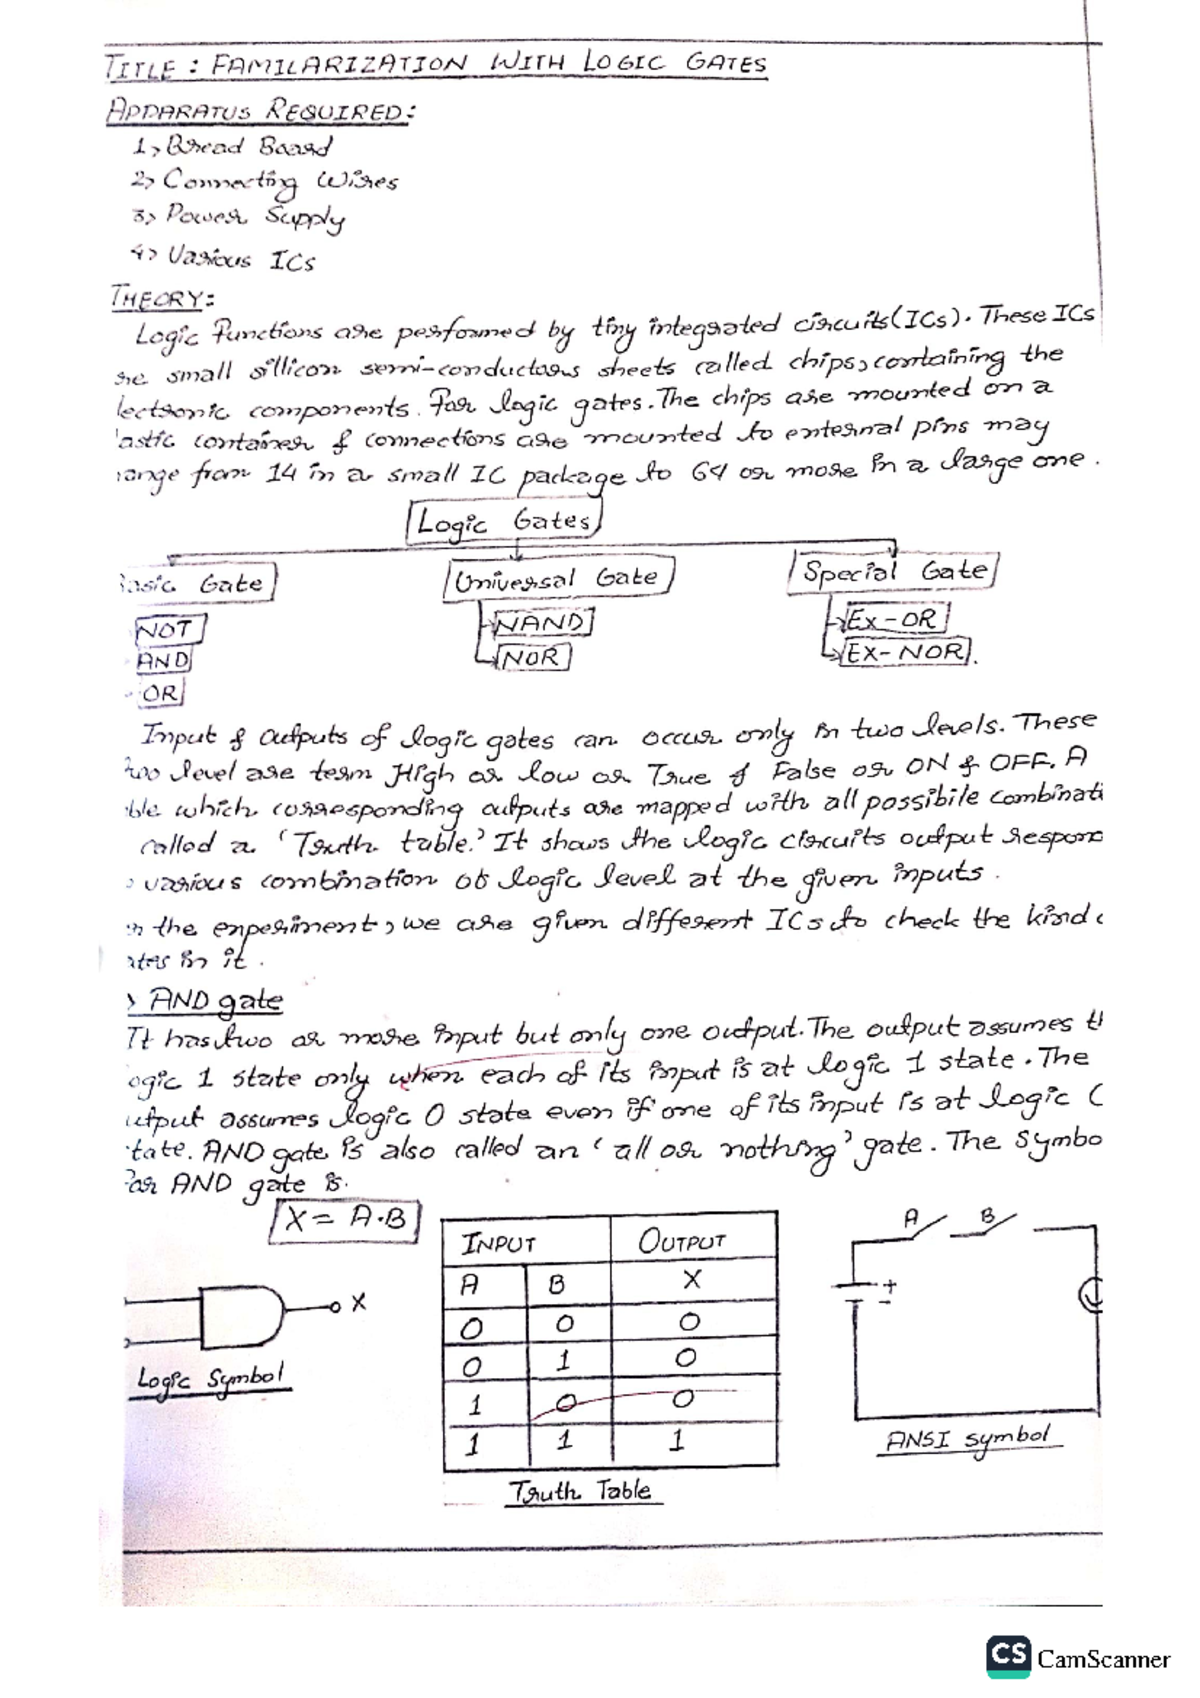 TITLE : FAMILARIZATION WITH LOGIC GATES
APPARATUS REQUIRED:
1> Bread Board
2> Connecting Wires
3> Power Supply
4> Various ICs
THEORY:
Logic functions are performed by tiny integrated circuits(ICs). These ICs
re small sillicon semi-conductors sheets called chips, containing the
lectronic components. For logic gates. The chips are mounted on a
lastic container & connections are mounted to enternal pins may
range from 14 in a small IC package to 64 or more in a large one.
Logic Gates
Basic Gate Universal Gate Special Gate
NOT NAND Ex-OR
AND NOR EX-NOR.
OR
Input & outputs of logic gates can occur only in two levels. These
two level are term High or low or True & False or ON & OFF. A
ble which corresponding outputs are mapped with all possibile combinati
called a 'Truth table.' It shows the logic circuits output respons
o various combination of logic level at the given inputs.
in the enperiment, we are given different ICs to check the kind o
ates in it.
> AND gate
It has two or more input but only one output. The output assumes th
ogic 1 state only when each of its input is at logic 1 state. The
utput assumes logic 0 state even if one of its input is at logic 0
tate. AND gate is also called an 'all or nothing' gate. The Symbo
for AND gate is.
X = A.B
INPUT OUTPUT
A B X
0 0 0
0 1 0
1 0 0
1 1 1
Truth Table
X
Logic Symbol
A B
+
-
ANSI symbol
CS CamScanner